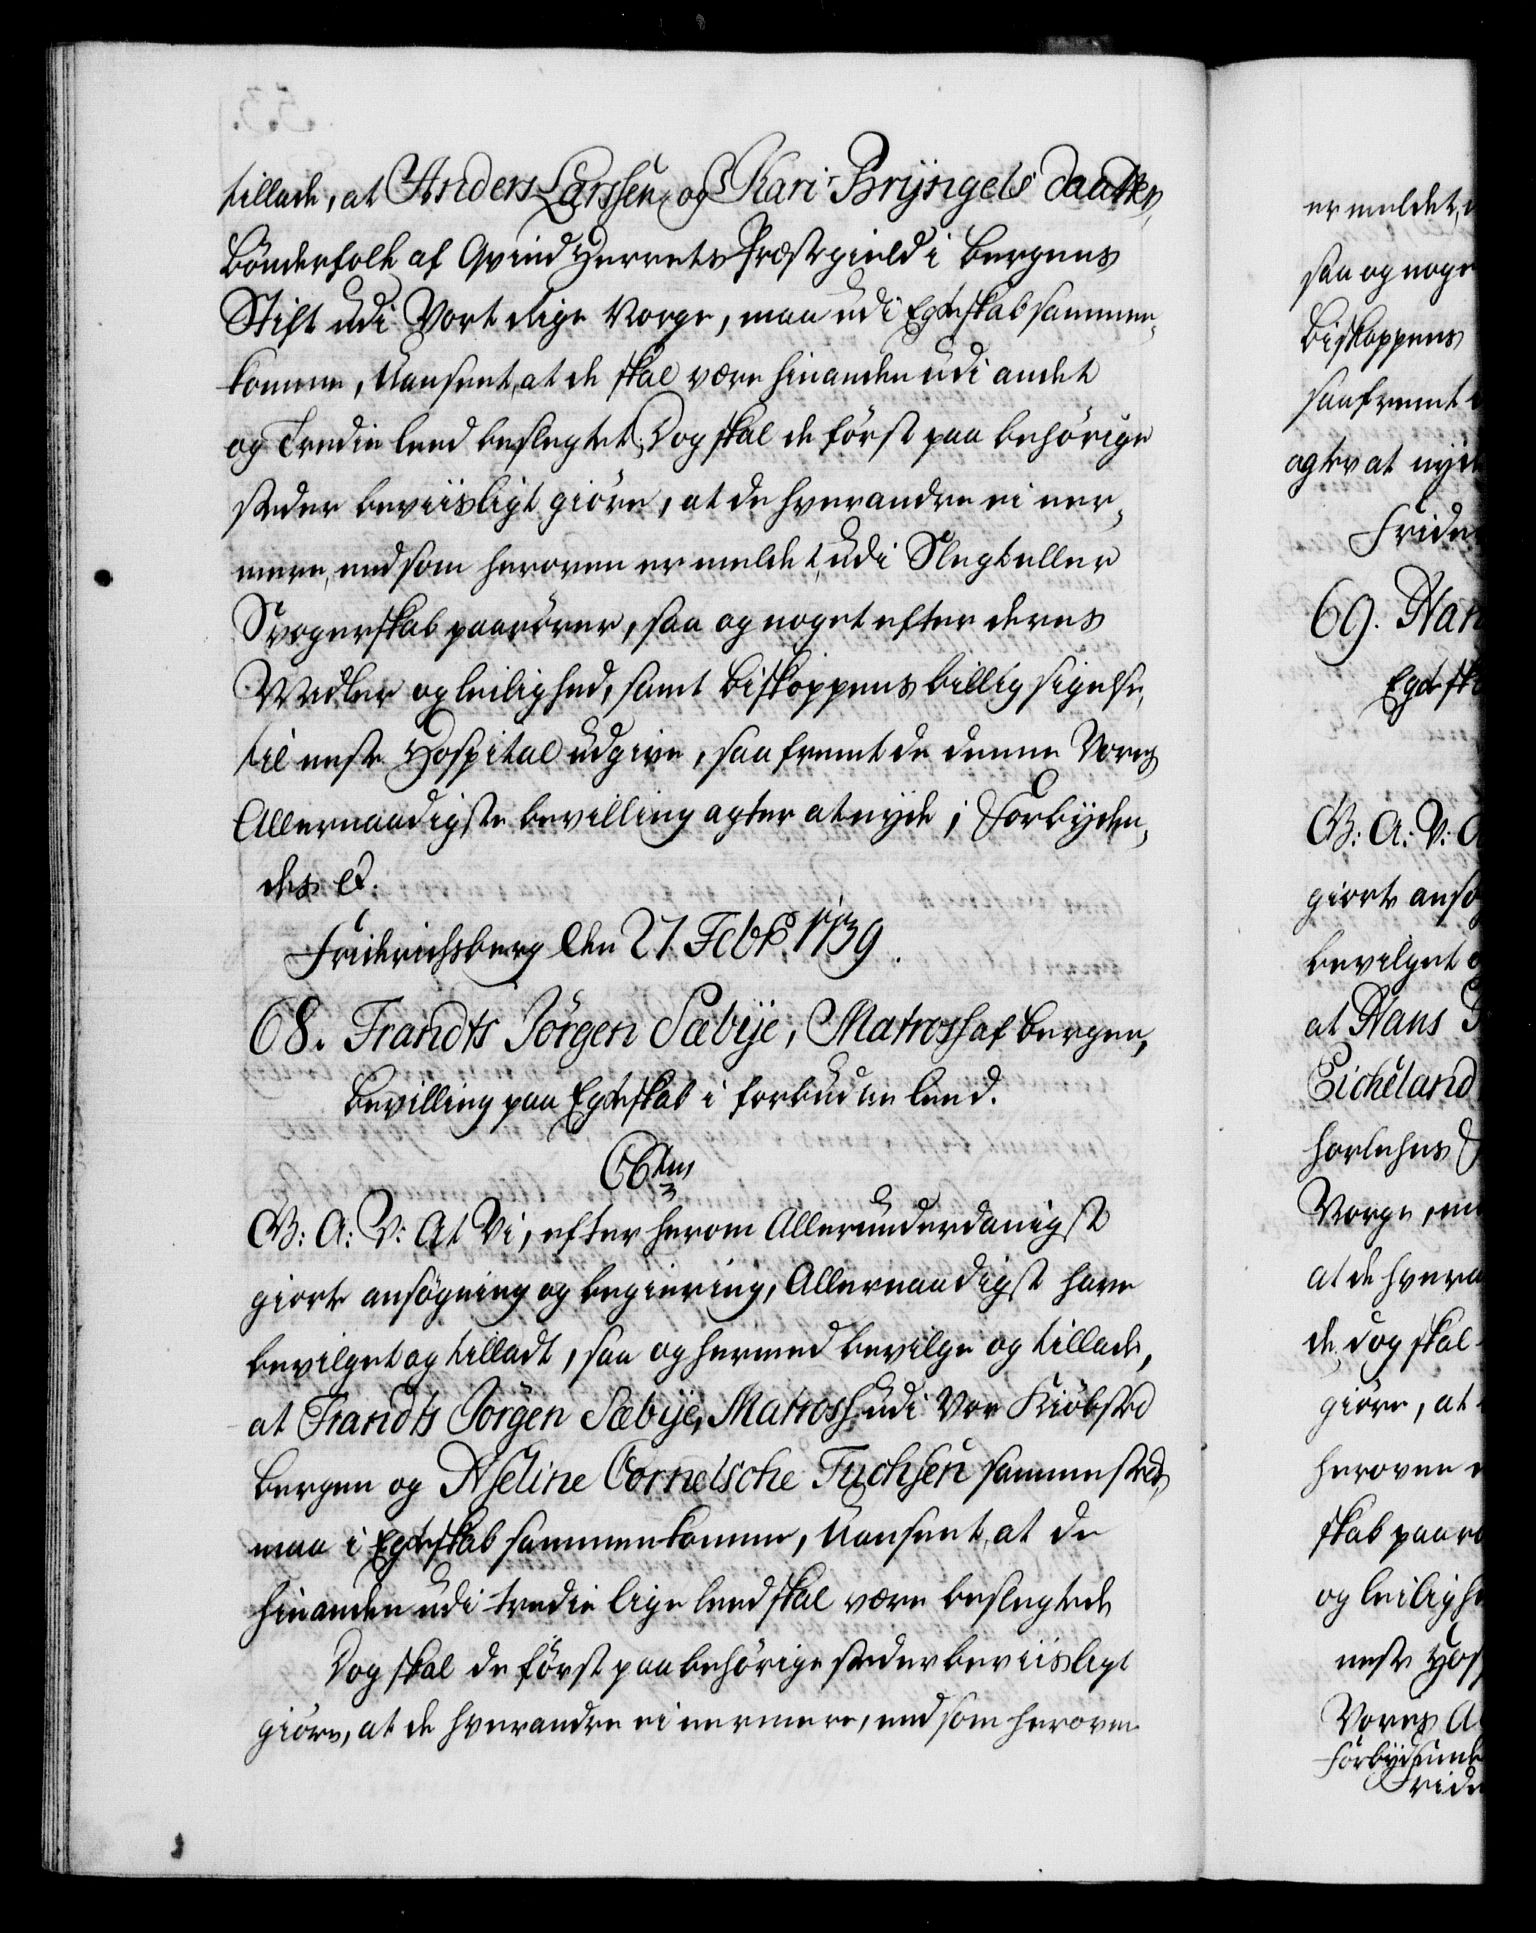 tillade, at Anders Larssen og Kari Brÿngels daatter,
bönderfolk af Qvindherrets Præstegield i Bergens
Stift udi Vort Rige Norge, maa udi Egteskab sammen-
komme, Uanseet, at de skal være hinanden udi andet
og Tredie leed beslegtet; Dog skal de först paa behörige
steder beviisligt giöre, at de hverandre ei ner-
mere, end som heroven er meldet, udi Slegt eller
Svogerskab paarörer, saa og noget efter deres
Midler og leilighed, samt Biskoppens billig sigelse,
til neste Hospital udgive, saafremt de denne Vores
Allernaadigste bevilling agter at nyde; Forbÿden-
des &.
Friderichsberg den 27. Febr: 1739.
68. Frandts Jörgen Sæbÿe, Matross af Bergen,
bevilling paa Egteskab i forbudne leed.
C6tus
G: A: V: At Vi, efter herom Allerunderdanigst
giorte ansögning og begiering, Allernaadigst have
bevilget og tilladt, saa og hermed bevilge og tillade,
at Frandts Jörgen Sæbÿe, Matross udi Vor Kiöbsted
Bergen og Aseline Cornelsche Fuchsen sammesteds,
maa i Egteskab sammenkomme, Uanseet, at de
hinanden udi tredie lige leed skal være beslegtede
Dog skal de först paa behörige steder beviisligt
giöre, at de hverandre ei nermere, end som heroven
er meldet,
saa og noge
Biskoppens
saafremt
agter at nyde
Frider
69. Han
Egtesk
G: A: V: A
giorte ansö
bevilget o
at Hans
Eicheland
Norge, m
at de hvera
de, dog skal
giöre, at
heroven e
skab paarö
og leilighe
neste Hosp
Vores A
Forbÿdende
Fride